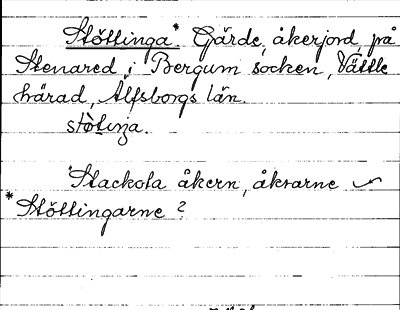 Stöttinga* Gärde, åkerjord, på
Stenared i Bergum socken, Vättle
härad, Älfsborgs län.
stòtiŋa.
Stackota åkern, åkrarne
*Stöttingarne?